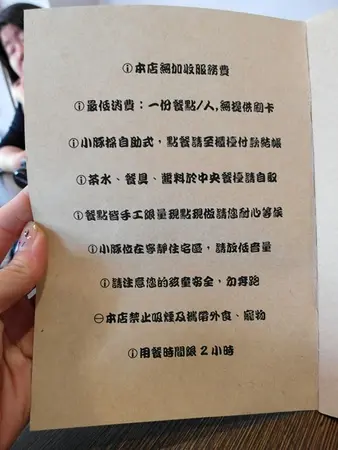 ⓘ本店無加收服務費
ⓘ最低消費：一份餐點/人,無提供刷卡
ⓘ小豚採自助式，點餐請至櫃檯付款結帳
ⓘ茶水、餐具、醬料於中央餐檯請自取
ⓘ餐點皆手工限量現點現做請您耐心等候
ⓘ小豚位在寧靜住宅區，請放低音量
ⓘ請注意您的孩童安全，勿奔跑
⊖本店禁止吸煙及攜帶外食、寵物
ⓘ用餐時間限 2 小時